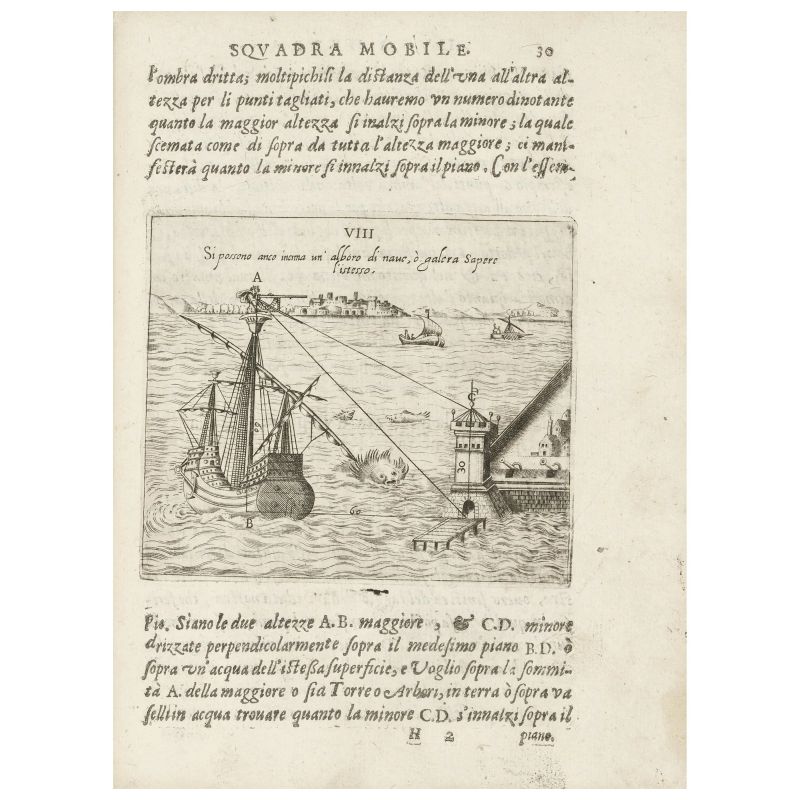 SQVADRA MOBILE. 30
l'ombra dritta; moltipichisi la distanza dell'vna all'altra al-
tezza per li punti tagliati, che hauremo vn numero dinotante
quanto la maggior altezza si inalzi sopra la minore; la quale
scemata come di sopra da tutta l'altezza maggiore; ci mani-
festerà quanto la minore si innalzi sopra il piano. Con l'essem-
VIII
Si possono anco incima un' alboro di naue, ò galera Sapere
l'istesso.
A
C
60
30
B
60
pio. Siano le due altezze A.B. maggiore, & C.D. minore
drizzate perpendicolarmente sopra il medesimo piano B.D. ò
sopra vn'acqua dell'istessa superficie, e Voglio sopra la sommi-
tà A. della maggiore o sia Torre o Arbori, in terra ò sopra va
selli in acqua trouare quanto la minore C.D. s'innalzi sopra il
H 2 piano.